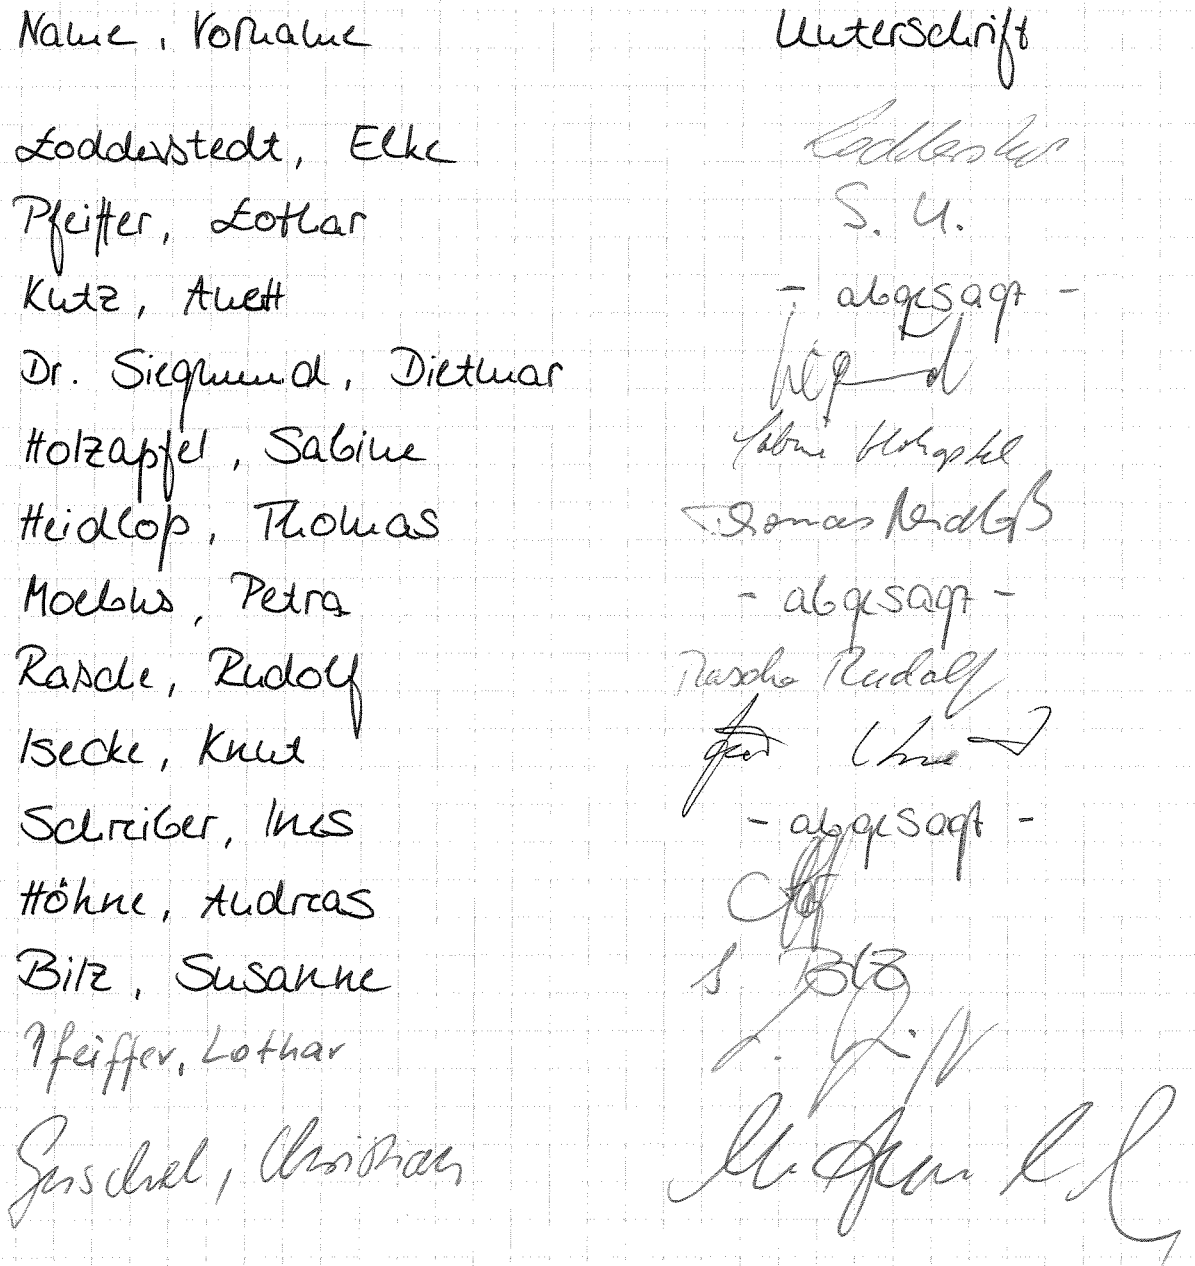 Name, Vorname Unterschrift
Lodderstedt, Elke Lodderstedt
Pfeiffer, Lothar S. U.
Kutz, Anett - abgesagt -
Dr. Siegmund, Dietmar
Holzapfel, Sabine Sabine Holzapfel
Heidloß, Thomas Thomas Heidloß
Moebius, Petra - abgesagt -
Rasche, Rudolf Rasche Rudolf
Isecke, Knut Knut
Schreiber, Ines - abgesagt -
Höhne, Andreas
Bilz, Susanne S. Bilz
Pfeiffer, Lothar L. Pfeiffer
Christian